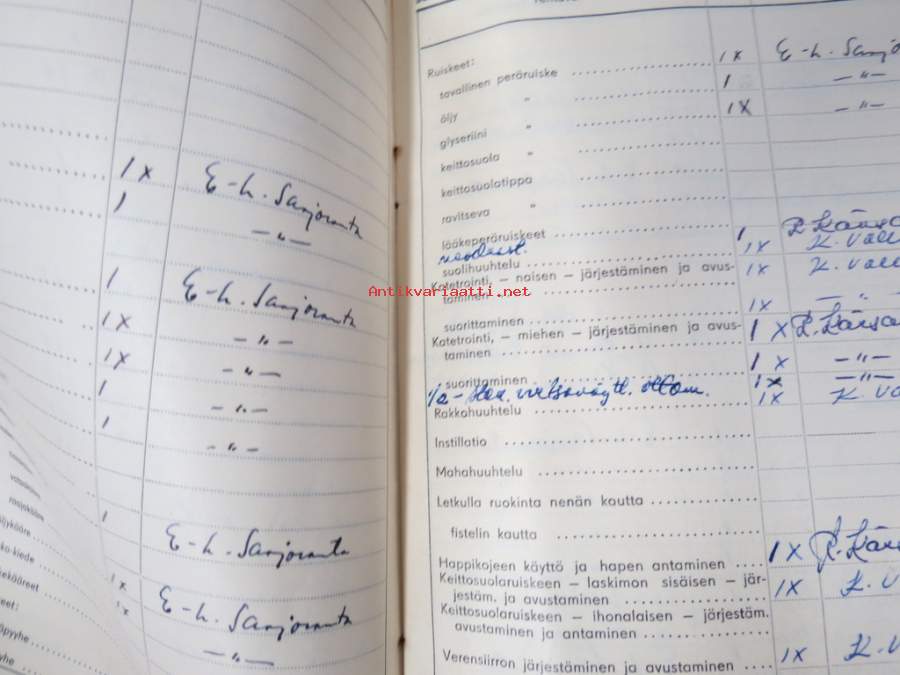 1 x E-L. Sarjoranta
1 — " —
1 E-L. Sarjoranta
1 x — " —
1 x — " —
1 — " —
1 — " —
1 E-L. Sarjoranta
1 x E-L. Sarjoranta
1 x — " —
Ruiskeet:
tavallinen peräruiske 1 x E-L. Sarjo
öljy " 1 — " —
glyseriini " 1 x — " —
keittosuola "
keittosuolatippa
ravitseva "
lääkeperäruiskeet 1
suolihuuhtelu 1 x K.
Katetrointi, – naisen – järjestäminen ja avus-
taminen 1 x K.
suorittaminen 1 x — " —
Katetrointi, – miehen – järjestäminen ja avus-
taminen 1 x
suorittaminen 1 x — " —
1 x — " —
Rakkohuuhtelu 1 x K.
Instillatio
Mahahuuhtelu
Letkulla ruokinta nenän kautta
fistelin kautta
Happikojeen käyttö ja hapen antaminen 1 x
Keittosuolaruiskeen – laskimon sisäisen – jär-
jestäm. ja avustaminen 1 x K. V
Keittosuolaruiskeen – ihonalaisen – järjestäm.
avustaminen ja antaminen
Verensiirron järjestäminen ja avustaminen 1 x K. V
Antikvariaatti.net